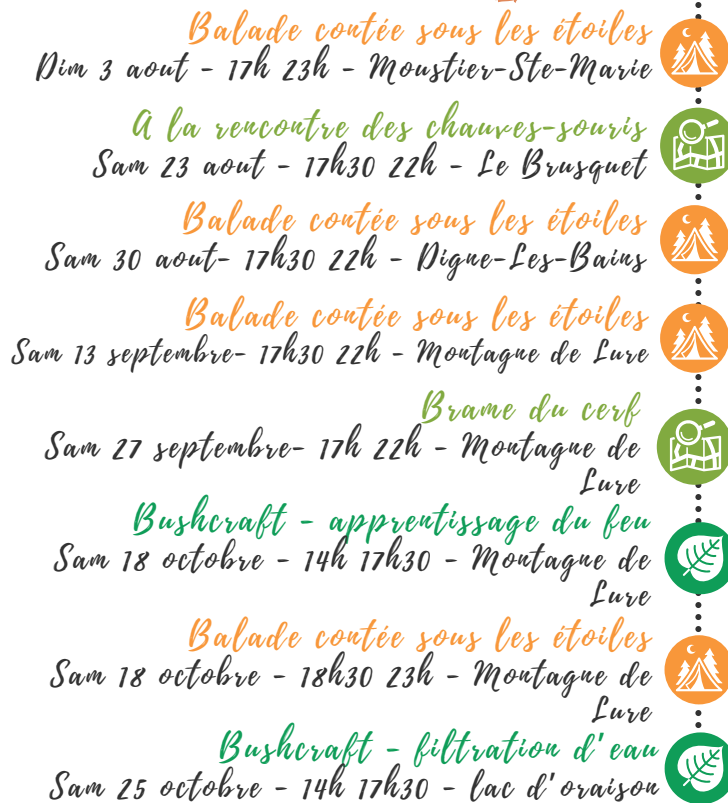 Balade contée sous les étoiles
Dim 3 aout - 17h 23h - Moustier-Ste-Marie
A la rencontre des chauves-souris
Sam 23 aout - 17h30 22h - Le Brusquet
Balade contée sous les étoiles
Sam 30 aout- 17h30 22h - Digne-Les-Bains
Balade contée sous les étoiles
Sam 13 septembre- 17h30 22h - Montagne de Lure
Brame du cerf
Sam 27 septembre- 17h 22h - Montagne de
Lure
Bushcraft - apprentissage du feu
Sam 18 octobre - 14h 17h30 - Montagne de
Lure
Balade contée sous les étoiles
Sam 18 octobre - 18h30 23h - Montagne de
Lure
Bushcraft - filtration d'eau
Sam 25 octobre - 14h 17h30 - lac d'oraison